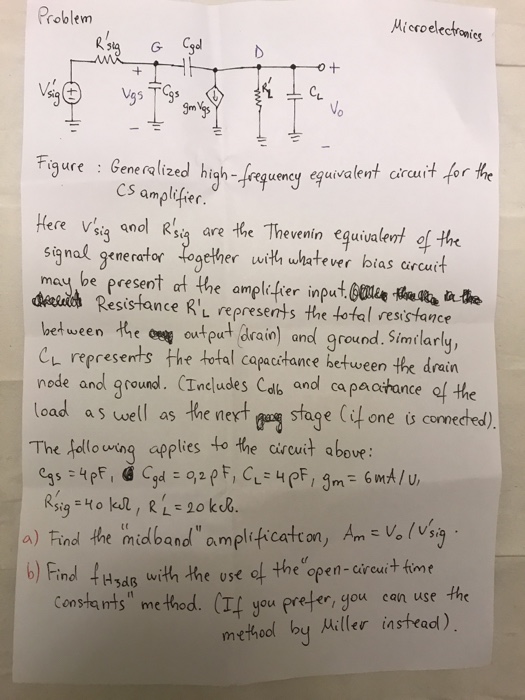 Problem
Microelectronics
R'sig G Cgd D
+ +
V'sig Vgs Cgs gmVgs R'L CL Vo
- -
Figure : Generalized high-frequency equivalent circuit for the
CS amplifier.
Here V'sig and R'sig are the Thevenin equivalent of the
signal generator together with whatever bias circuit
may be present at the amplifier input.
Resistance R'L represents the total resistance
between the output (drain) and ground. Similarly,
CL represents the total capacitance between the drain
node and ground. (Includes Cdb and capacitance of the
load as well as the next stage (if one is connected).
The following applies to the circuit above:
Cgs = 4pF, Cgd = 0,2pF, CL = 4pF, gm = 6mA/V,
R'sig = 40 kΩ, R'L = 20 kΩ.
a) Find the "midband" amplification, Am = Vo/V'sig.
b) Find fH3dB with the use of the "open-circuit time
constants" method. (If you prefer, you can use the
method by Miller instead).